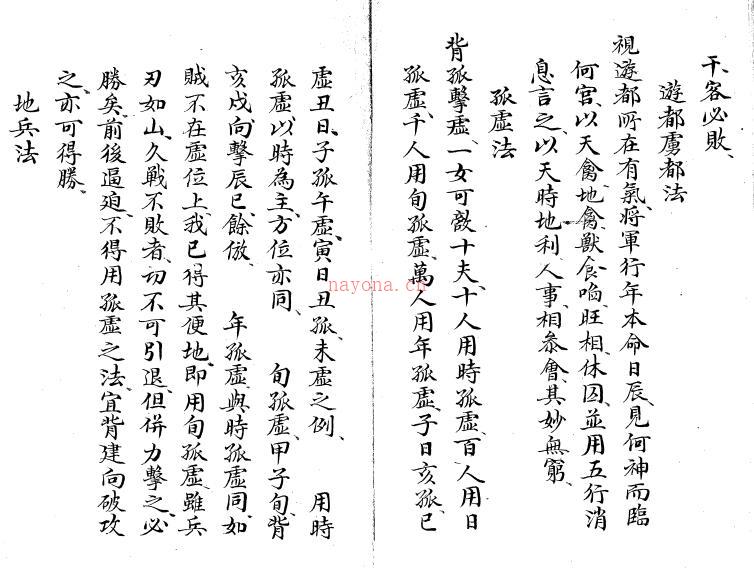 干、客必敗、
遊都虜都法
視遊都所在有氣、將軍行年本命日辰、見何神而臨
何宮、以天禽、地禽、獸食啗、旺相休囚、並用五行消
息言之、以天時地利人事、相參會、其妙無窮、
孤虛法
背孤擊虛、一女可敵十夫、十人用時孤虛、百人用日
孤虛、千人用旬孤虛、萬人用年孤虛、子日亥孤巳
虛、丑日、子孤午虛、寅日丑孤、未虛之例、 用時
孤虛、以時為主、方位亦同、 旬孤虛、甲子旬、背
亥戌、向擊辰巳、餘倣、 年孤虛、與時孤虛同、如
賊不在虛位上、我已得其便地、即用旬孤虛、雖兵
刃如山、久戰不敗者、切不可引退、但併力擊之、必
勝矣、前後逼廹、不得用孤虛之法、宜背建向破攻
之、亦可得勝、
地兵法
nayona.cn